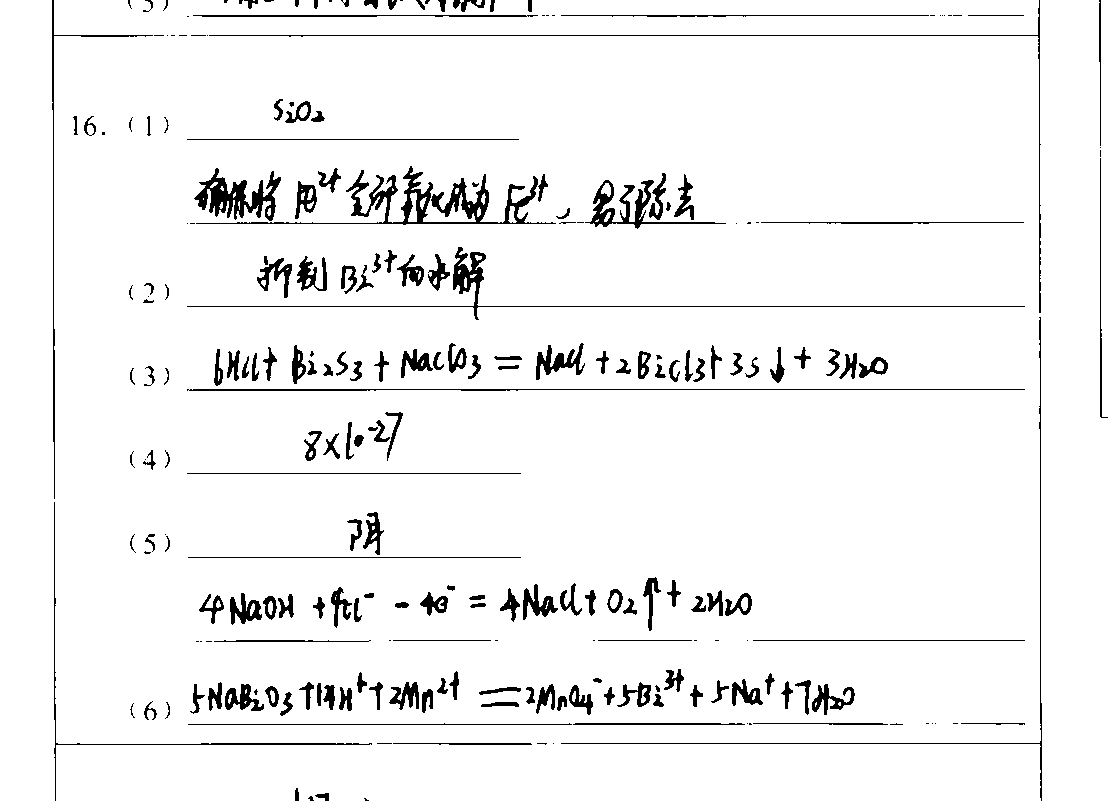 16. (1) SiO₂
确保将Fe²⁺全部氧化成为Fe³⁺, 易于除去
(2) 抑制Bi³⁺的水解
(3) 6HCl + Bi₂S₃ + NaClO₃ = NaCl + 2BiCl₃ + 3S↓ + 3H₂O
(4) 8×10⁻²⁷
(5) 阴
4NaOH + 4Cl⁻ - 4e⁻ = 4NaCl + O₂↑ + 2H₂O
(6) 5NaBiO₃ + 14H⁺ + 2Mn²⁺ = 2MnO₄⁻ + 5Bi³⁺ + 5Na⁺ + 7H₂O